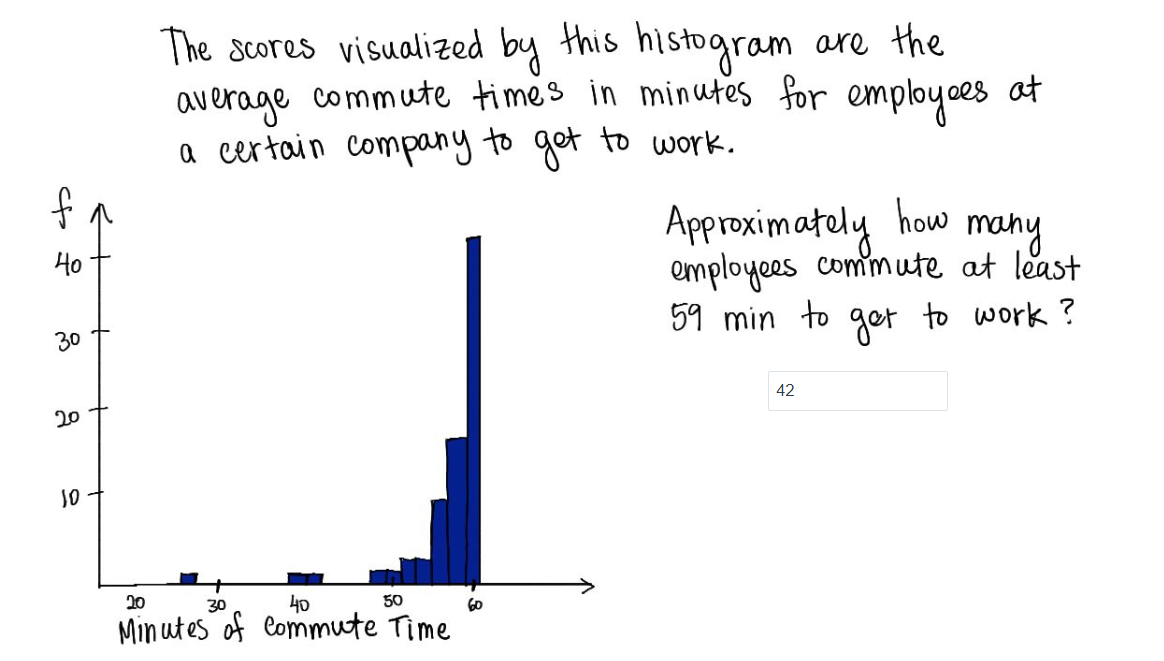 The scores visualized by this histogram are the
average commute times in minutes for employees at
a certain company to get to work.
f
40
30
20
10
20 30 40 50 60
Minutes of Commute Time
Approximately how many
employees commute at least
59 min to get to work?
42